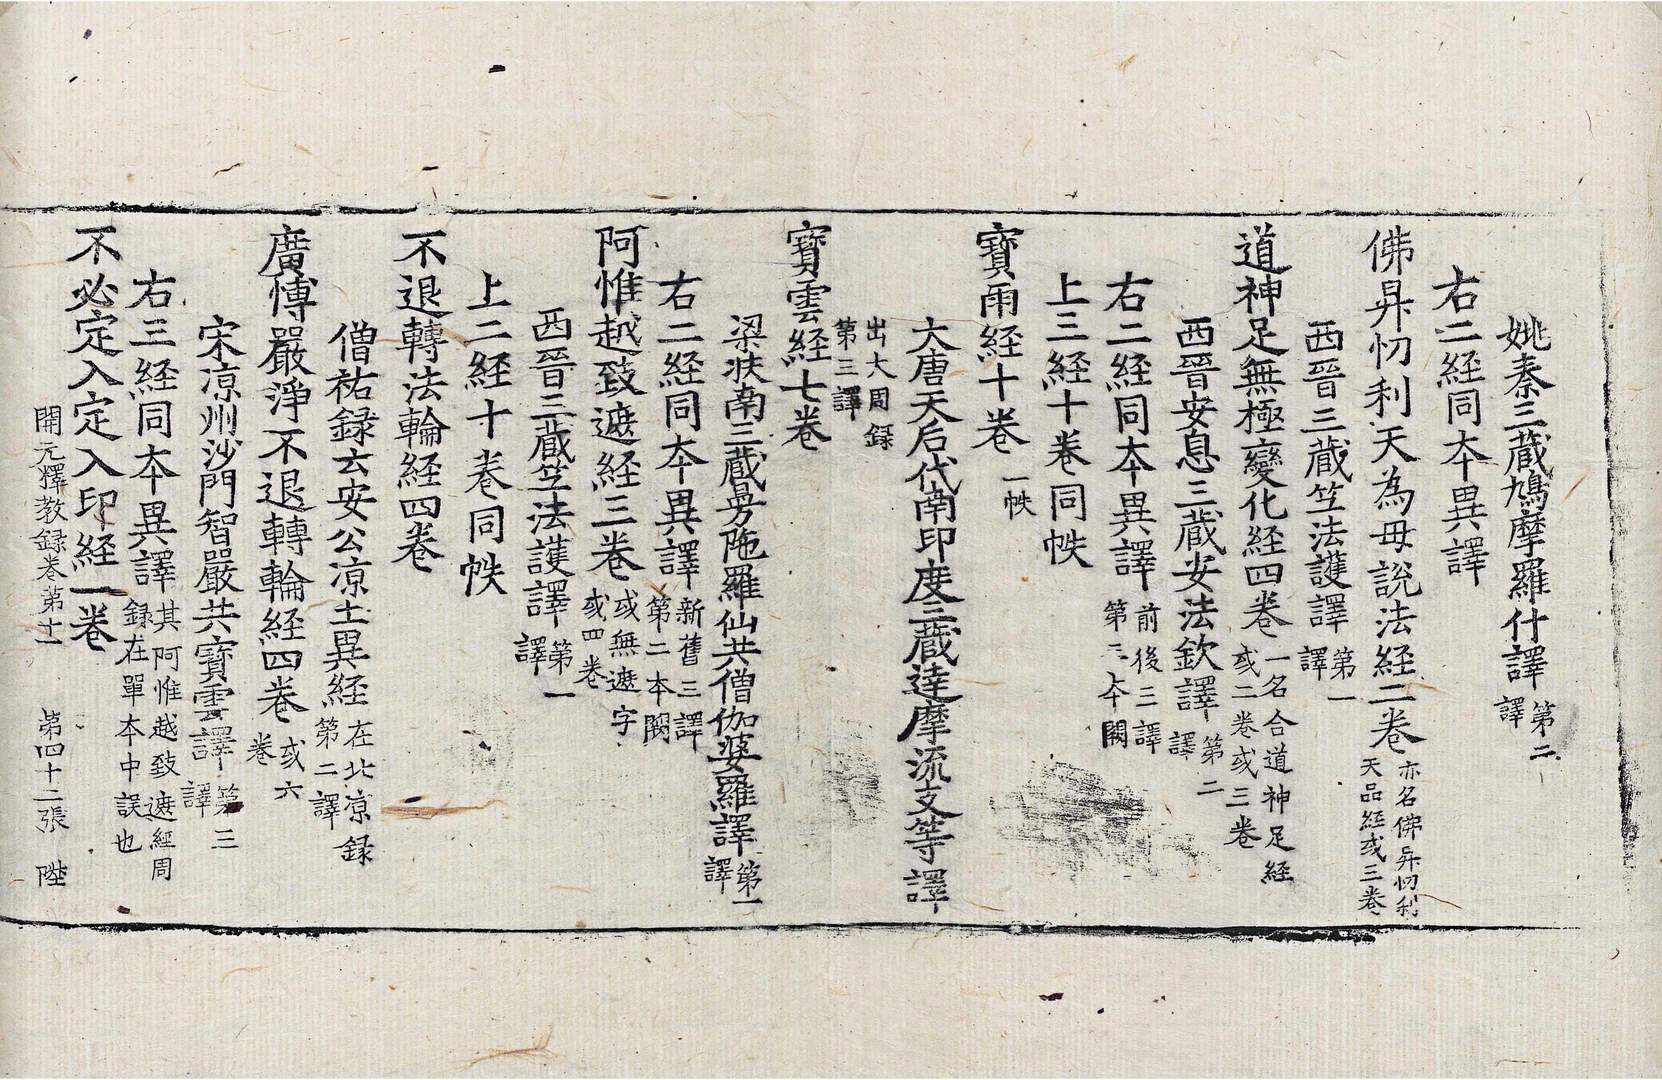 姚秦三蔵鳩摩羅什譯第二譯
右二経同夲異譯
佛昇忉利天為母說法経二卷亦名佛昇忉利天品経或三卷
西晉三蔵笁法護譯第一譯
道神足無極變化経四卷一名合道神足経或二卷或三卷
西晉安息三蔵安法欽譯第二譯
右二経同夲異譯前後三譯第三夲闕
上三経十卷同帙
寶雨経十卷一帙
大唐天后代南印度三蔵達摩流支等譯
出大周録第三譯
寶雲経七卷
梁扶南三蔵曼陁羅仙共僧伽婆羅譯第一譯
右二経同夲異譯新舊三譯第二本闕
阿惟越致遮経三卷或無遮字或四卷
西晉三蔵笁法護譯第一譯
上二経十卷同帙
不退轉法輪経四卷
僧祐録云安公凉土異経在北凉録第二譯
廣博嚴淨不退轉輪経四卷或六卷
宋凉州沙門智嚴共寶雲譯第三譯
右三経同夲異譯其阿惟越致遮經周録在單夲中誤也
不必定入定入印経一卷
開元釋教録卷第十一 第四十二張 陛